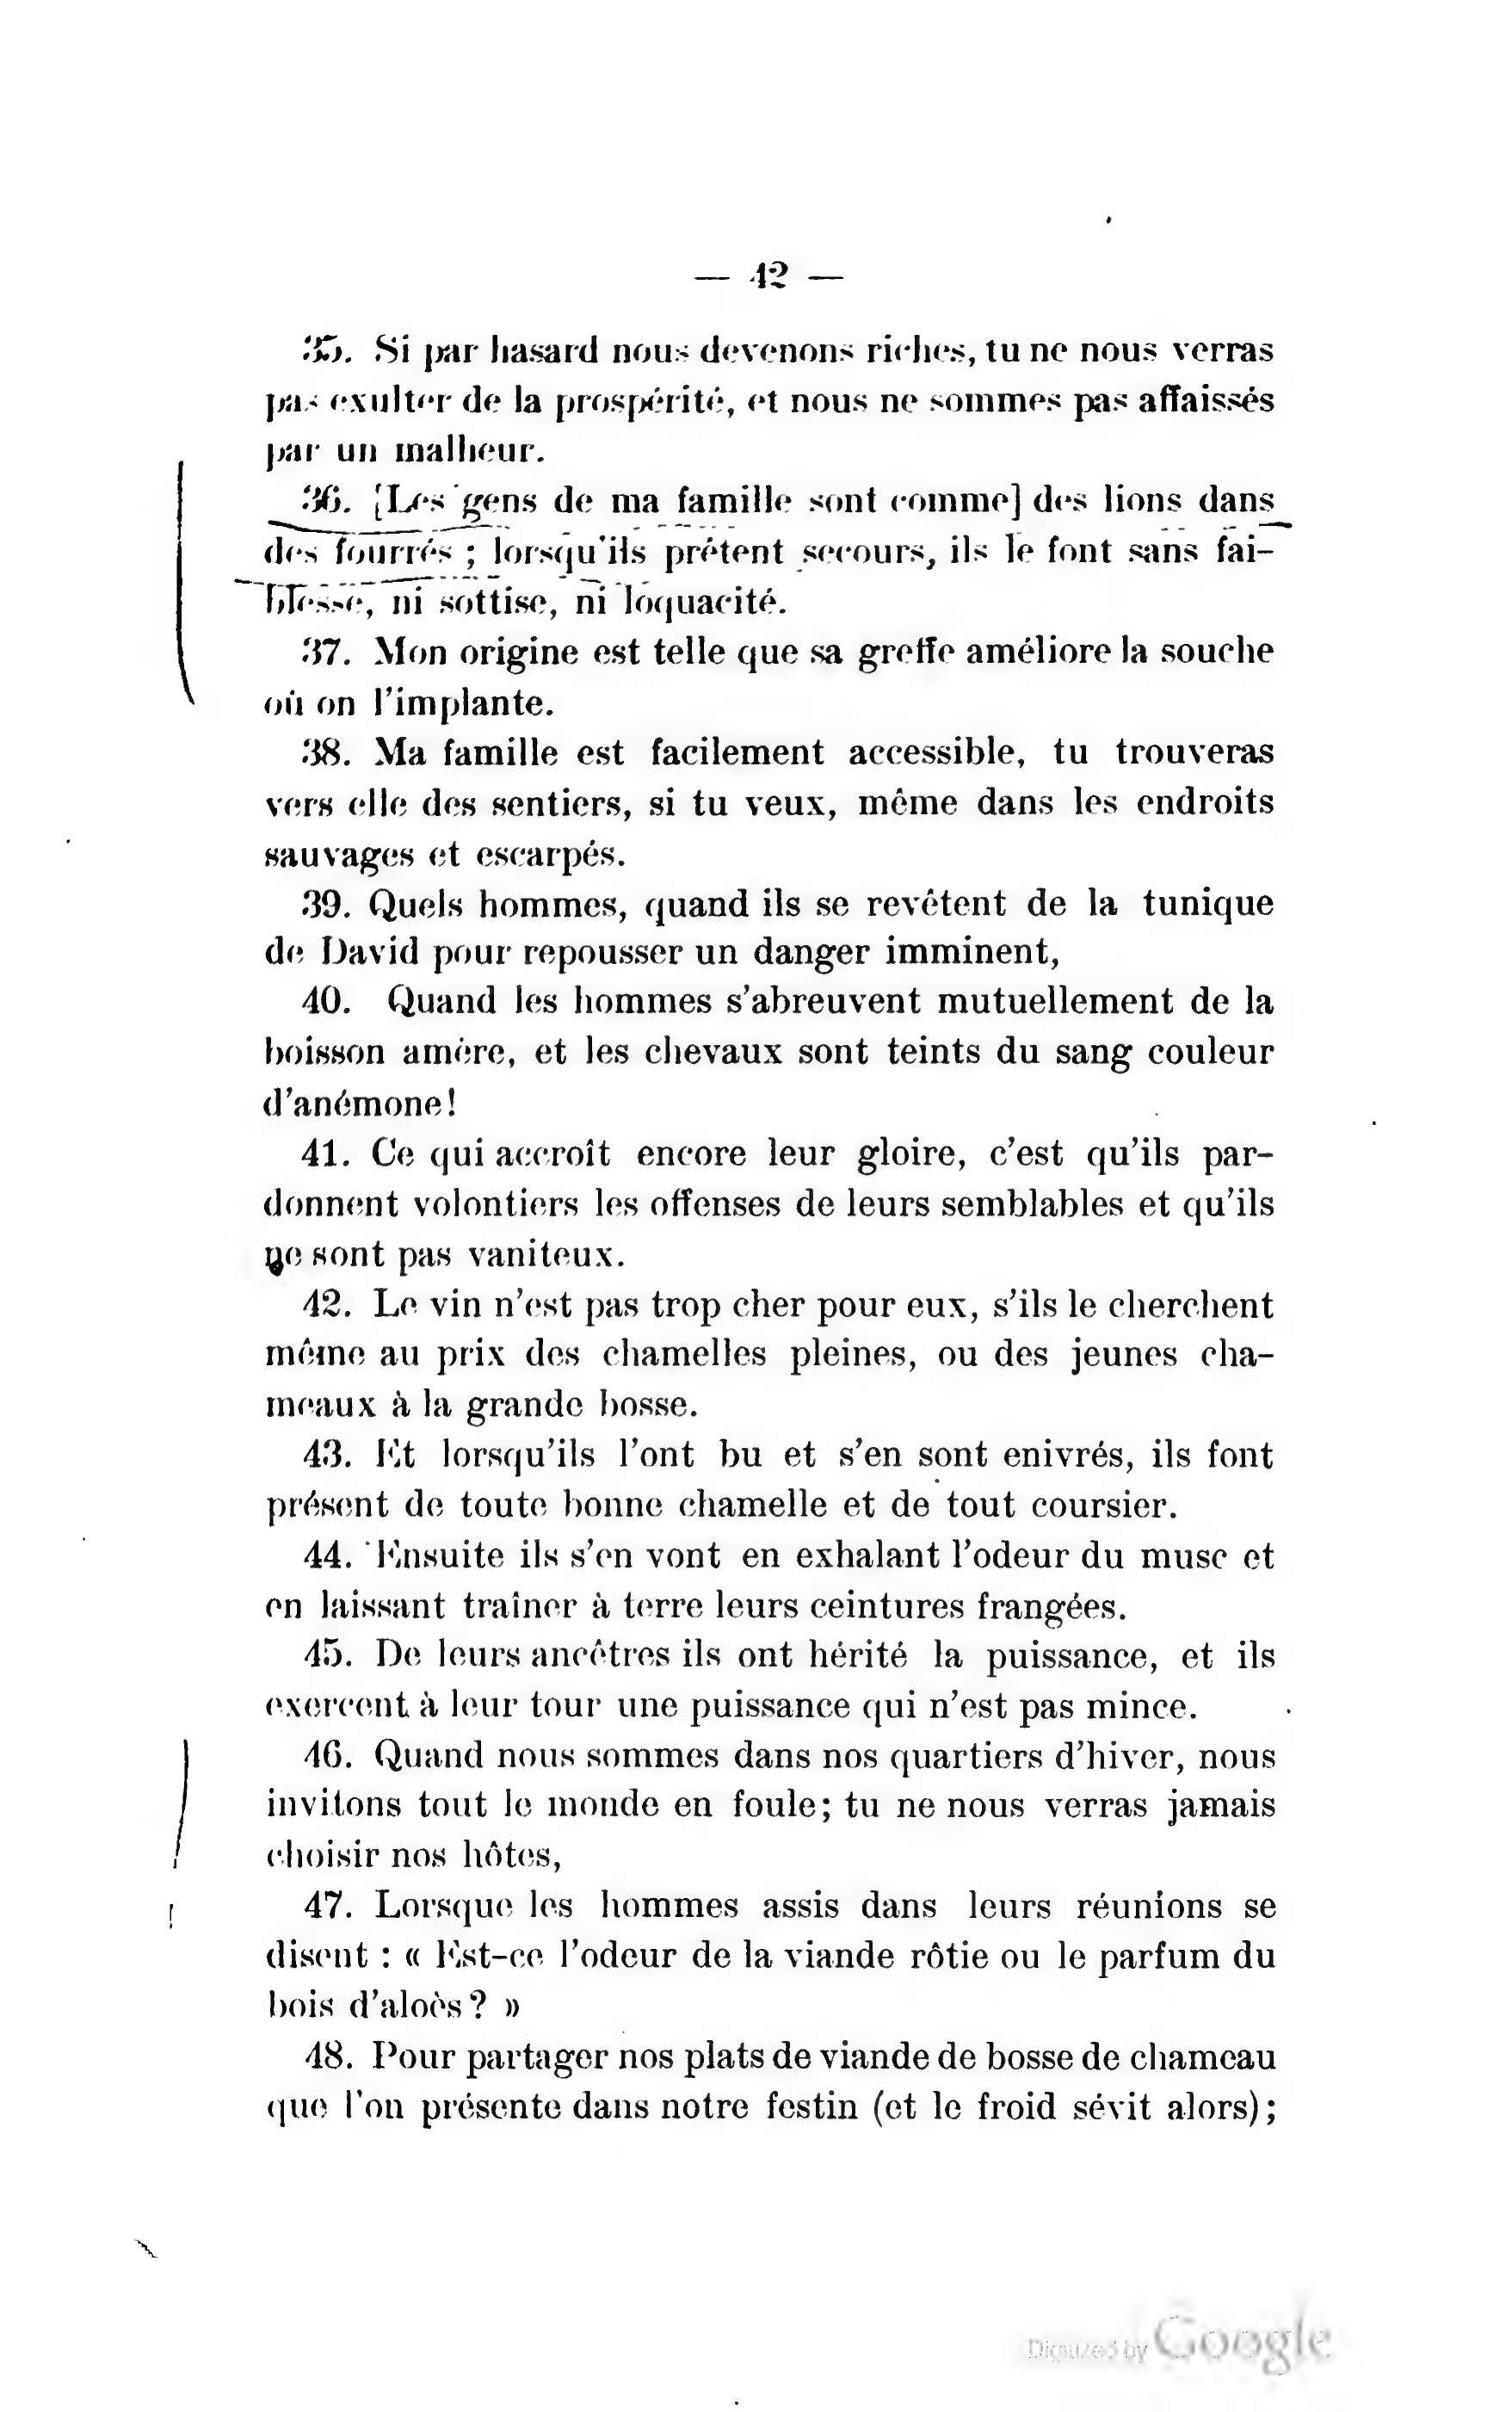 — 42 —
35. Si par hasard nous devenons riches, tu ne nous verras
pas exulter de la prospérité, et nous ne sommes pas affaissés
par un malheur.
36. [Les gens de ma famille sont comme] des lions dans
des fourrés ; lorsqu'ils prêtent secours, ils le font sans fai-
blesse, ni sottise, ni loquacité.
37. Mon origine est telle que sa greffe améliore la souche
où on l'implante.
38. Ma famille est facilement accessible, tu trouveras
vers elle des sentiers, si tu veux, même dans les endroits
sauvages et escarpés.
39. Quels hommes, quand ils se revêtent de la tunique
de David pour repousser un danger imminent,
40. Quand les hommes s'abreuvent mutuellement de la
boisson amère, et les chevaux sont teints du sang couleur
d'anémone!
41. Ce qui accroît encore leur gloire, c'est qu'ils par-
donnent volontiers les offenses de leurs semblables et qu'ils
ne sont pas vaniteux.
42. Le vin n'est pas trop cher pour eux, s'ils le cherchent
même au prix des chamelles pleines, ou des jeunes cha-
meaux à la grande bosse.
43. Et lorsqu'ils l'ont bu et s'en sont enivrés, ils font
présent de toute bonne chamelle et de tout coursier.
44. Ensuite ils s'en vont en exhalant l'odeur du musc et
en laissant traîner à terre leurs ceintures frangées.
45. De leurs ancêtres ils ont hérité la puissance, et ils
exercent à leur tour une puissance qui n'est pas mince.
46. Quand nous sommes dans nos quartiers d'hiver, nous
invitons tout le monde en foule; tu ne nous verras jamais
choisir nos hôtes,
47. Lorsque les hommes assis dans leurs réunions se
disent : « Est-ce l'odeur de la viande rôtie ou le parfum du
bois d'aloès? »
48. Pour partager nos plats de viande de bosse de chameau
que l'on présente dans notre festin (et le froid sévit alors);
Digitized by Google